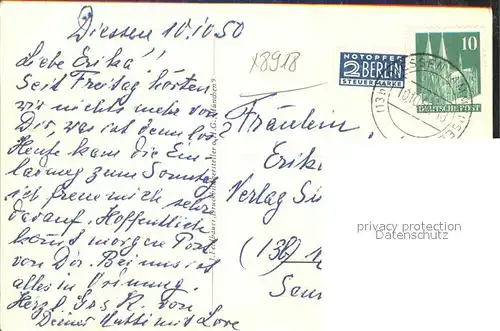 Diessen 10.10.50
Liebe Erika!!
Seit Freitag hörten
wir nichts mehr von
Dir, was ist denn los?
Heute kam die Ein-
ladung zum Sonntag
ich freue mich sehr
darauf. Hoffentlich
kommt morgen Post
von Dir. Bei uns ist
alles in Ordnung.
Herzl. Grs. K. von
Deiner Mutti mit Lore
x8918
NOTOPFER
2 BERLIN
STEUERMARKE
10
DEUTSCHE POST
Fräulein
Erik
Verlag Sü
(13b)
privacy protection
Datenschutz